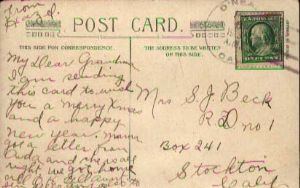 from
POST CARD.
THIS SIDE FOR CORRESPONDENCE.
THE ADDRESS TO BE WRITTEN ON THIS SIDE
My Dear Grandma
I am sending
this card to wish
you a merry Xmas
and a happy
new year. Mama
got a letter from
and she is all
right. we got home
Mrs S. J. Beck
RD no 1
Box 241
Stockton
Calif